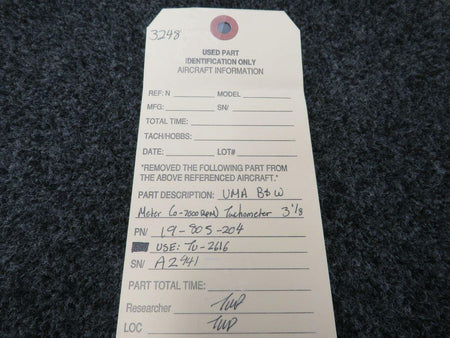 3248
USED PART
IDENTIFICATION ONLY
AIRCRAFT INFORMATION
REF: N MODEL
MFG: SN/
TOTAL TIME:
TACH/HOBBS:
DATE: LOT#
"REMOVED THE FOLLOWING PART FROM
THE ABOVE REFERENCED AIRCRAFT."
PART DESCRIPTION: UMA B&W
Meter (0-7000 RPM) Tachometer 3 1/8
PN/ 19-805-204
USE: TU-2616
SN/ A2441
PART TOTAL TIME:
Researcher
LOC